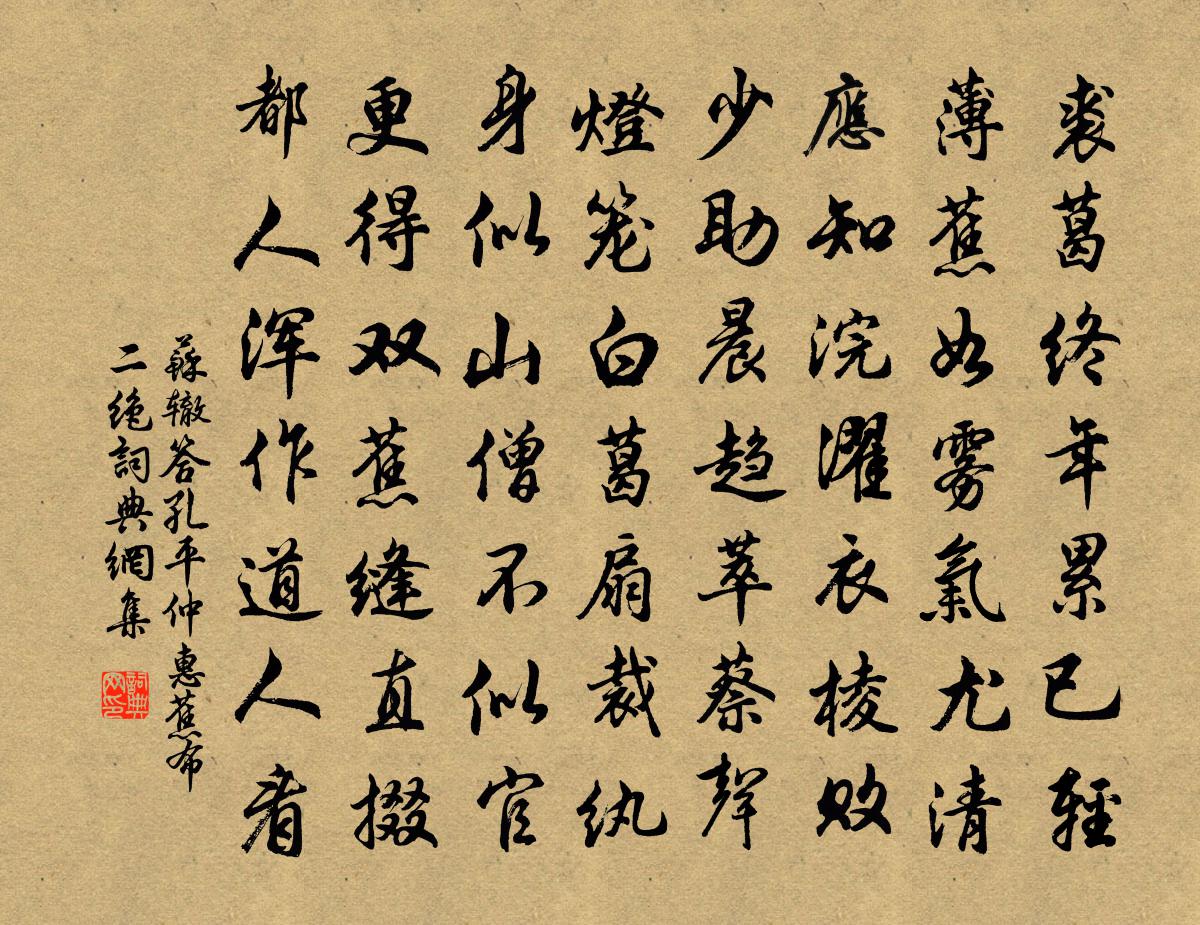 裘葛终年累已輕
薄蕉如雾氣尤清
應知浣濯衣棱败
少助晨趋萃蔡聲
燈笼白葛扇裁纨
身似山僧不似官
更得双蕉縫直掇
都人浑作道人看
蘇辙答孔平仲惠蕉布
二绝詞典網集
詞典网印